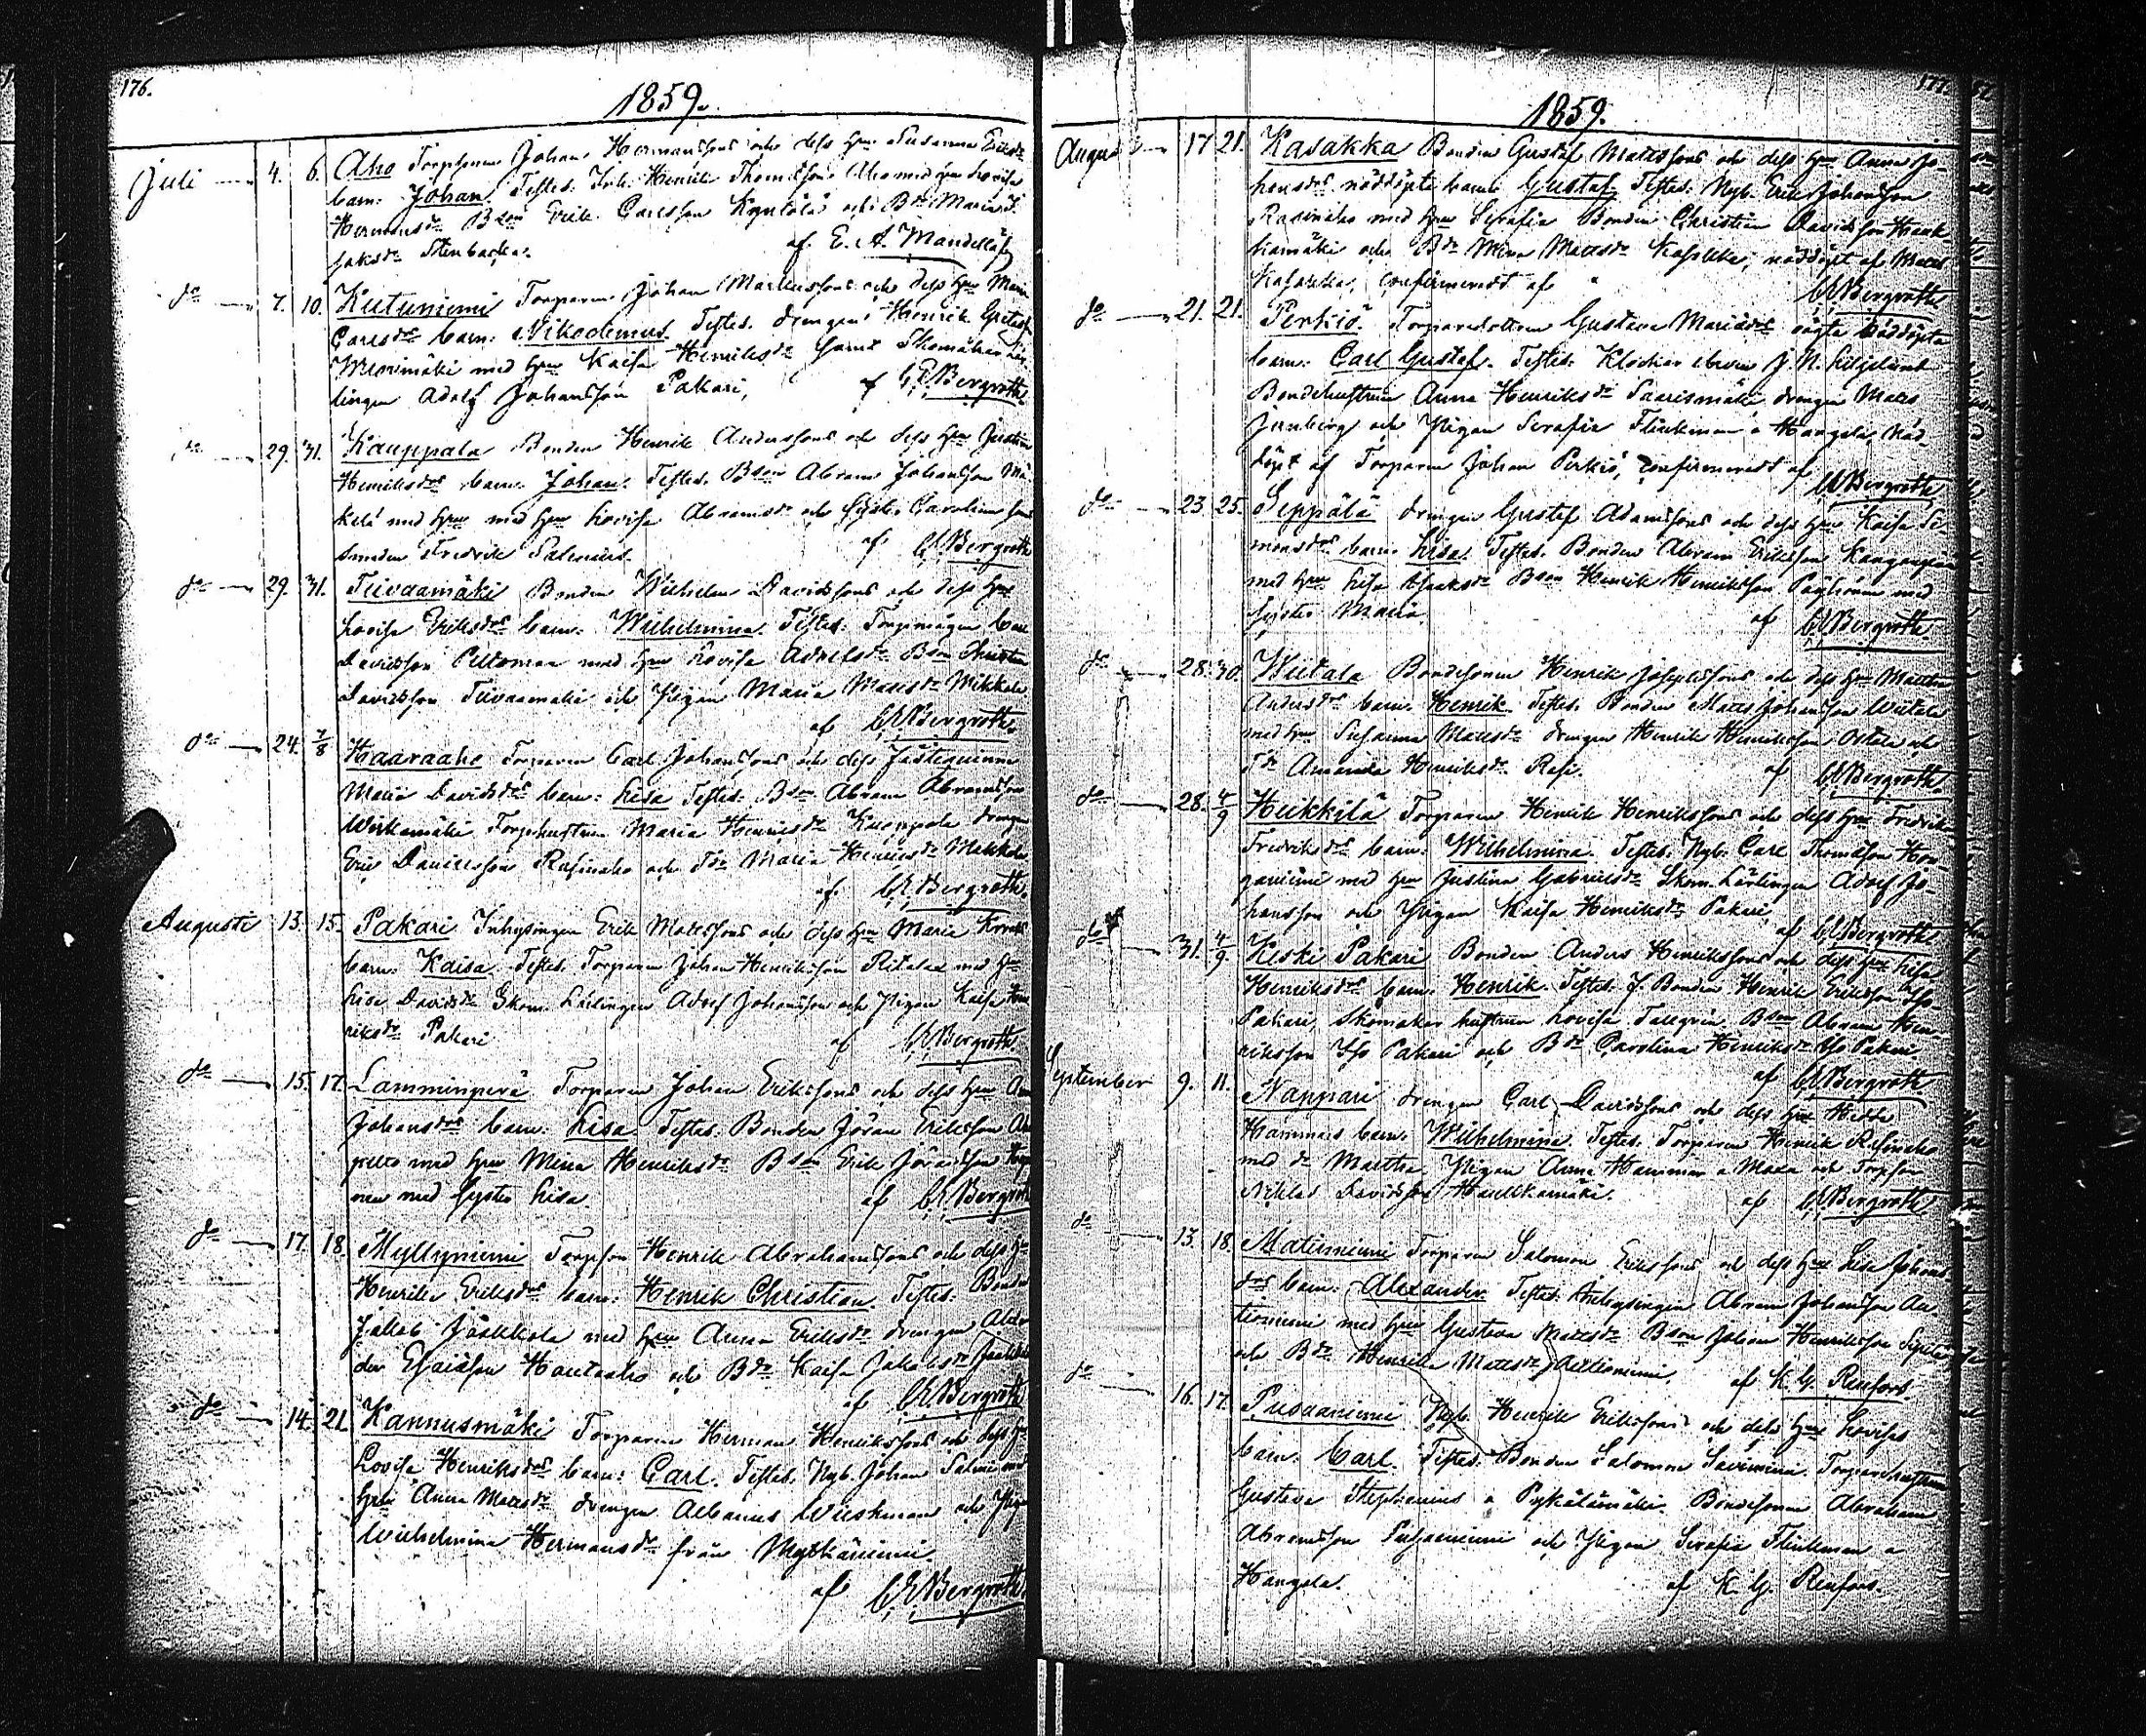 176.
1859.
Juli 4. 6. Aho Torpsonen Johan Hermanssons och dess hu Susanna Eriksdrs
barn: Johan. Testes. Inh. Henrik Thomasson Aho med hu Lovisa
Hermansdr Bson Erik Carlsson Kyntölä och Bdr Maria I-
saksdr Stenbacka. af E. A. Mandellöf
do 7. 10. Kutuniemi Torparen Johan Markussons och dess hus Maria
Carlsdrs barn: Nikodemus. Testes. drengen Henrik Gustafss.
med hu Kaisa Henriksdr samt Skomakare lär-
lingen Adolf Johansson Pakari, af C E Bergroth.
do 29. 31. Kauppala Bonden Henrik Anderssons och dess hus Justina
Henriksdrs barn. Johan. Testes. Bson Abram Johansson Mä-
kelä med hu Lovisa Abramsdr och Syster Carolina
Fredrik Salenius. af C E Bergroth
do 29. 31. Tiivaamäki Bonden Wilhelm Davidssons och dess hus
Lovisa Eriksdrs barn: Wilhelmina. Testes: Torpsmågen Carl
Davidsson Peltomaa med hu Lovisa Bson Christian
Davidsson Tiivaamäki och Pigan Maria Mattsdr Mikkola
af C E Bergroth.
do 24. 7/8 Haaraaho Torparen Carl Johanssons och dess Fästeqvinna
Maria Davidsdrs barn: Lisa Testes: Bson Abram Abramsson
Torphustrun Maria Henriksdr Kauppala drengen
Eric Danielsson Rasinaho och Tdr Maria Henriksdr Mikkola
af C E Bergroth.
Augusti 13. 15. Pakari Inhysingen Erik Mattssons och dess hus Maria
barn: Kaisa. Testes. Torparen Johan Henriksson Ritala med hu
Lisa Davidsdr Skom. Lärlingen Adolf Johansson och Pigan Kaisa Hen-
riksdr Pakari af C E Bergroth
do 15. 17. Lamminperä Torparen Johan Erikssons och dess hus
Johansdrs barn: Lisa. Testes. Bonden Jöran Eriksson
med hu Mina Henriksdr Bson Erik Jöransson
med Syster Lisa. af C E Bergroth
do 17. 18. Myllyniemi Torpson Henrik Abrahamssons och dess hus
Henrika Eriksdrs barn: Henrik Christian. Testes. Bonden
Jakob Jäskkola med hu Anna Eriksdr drengen Alexan-
der Esaiasson Hautaaho och Bdr Kaisa Jakobsdr
af C E Bergroth
do 14. 21. Kannusmäki Torparen Herman Henrikssons och dess hus
Lovisa Henriksdrs barn: Carl. Testes. Nyb. Johan Salmi med
hu Anna Mattsdr drengen Albanus och Pigan
Wilhelmina Hermansdr från Mylläriniemi.
af C E Bergroth
177.
1859.
Augusti 17 21. Kasakka Bonden Gustaf Mattssons och dess hus Anna Jo-
hansdrs nöddöpta barn Gustaf. Testes. Nyb. Erik Johansson
Rasinaho med hu Serafia Bonden Christian Davidsson Hauk-
kamäki och Bdr Mina Mattsdr Kasakka, nöddöpt af Matts
Kasakka, confirmeradt af C E Bergroth
do 21. 21. Perkiö. Torparedottren Gustava Mariasdrs oägta nöddöpta
barn: Carl Gustaf. Testes. Klockar eleven J. N. Liljelund
Bondehustrun Anna Henriksdr Saarismäki drengen Matts
Jernberg och Pigan Serafia Flinkman a Hangala, nöd-
döpt af Torparen Johan Perkiö, confirmeradt af
C E Bergroth
do 23. 25. Seppälä drengen Gustaf Adamssons och dess hus Kaisa Si-
monsdrs barn. Lisa. Testes. Bonden Abram Eriksson Kangaspää
med hu Lisa Isaksdr Bson Henrik Henriksson med
syster Maria. af C E Bergroth
do 28. 30. Wiitala Bondesonen Henrik Josephssons och dess hus Maltta
Andersdrs barn. Henrik. Testes. Bonden Matts Johansson Wiitala
med hu Susanna Mattsdr drengen Henrik Henriksson och
Tdr Amanda Henriksdr Rasi. af C E Bergroth.
do 28. 4/9 Heikkilä Torparen Henrik Henrikssons och dess hus Fredrika
Fredriksdrs barn: Wilhelmina. Testes. Nyb. Carl Thomasson Hon-
ganiemi med hu Justina Gabrielsdr Skom. Lärlingen Adolf Jo-
hansson och Pigan Kaisa Henriksdr Pakari,
af C E Bergroth
do 31. 4/9 Keski Pakari Bonden Anders Henrikssons och dess hus Lisa
Henriksdrs barn: Henrik. Testes. F. Bonden Henrik Eriksson Yso
Pakari, Skomakar hustrun Lovisa Tallgrén, Bson Abram Hen-
riksson Yso Pakari och Bdr Carolina Henriksdr Yso Pakari
af C E Bergroth.
September 9. 11. Nappari drengen Carl Davidssons och dess hus Hedda
Hammars barn. Wilhelmina Testes. Torparen Henrik Rasinaho
med dr Maltta. Pigan Anna Hammar a och Torpson
Niklas Davidsson Haukkamäki. af C E Bergroth
do 13. 18. Matiniemi Torparen Salomon Erikssons och dess hus Lisa Johans-
drs barn: Alexander Testes. Inhysingen Abram Johansson Au-
tioniemi med hu Gustava Mattsdr Bson Johan Henriksson
och Bdr Henrika Mattsdr Autioniemi. af K. G. Renfors.
do 16. 17. Pusaaniemi Nyb. Henrik Erikssons och dess hus Lovisas
barn. Carl. Testes. Bonden Salomon Saviniemi Torparehustrun
Gustava Stephanius a Pykälämäki. Bondesonen Abraham
Abramsson Pusaaniemi och Pigan Serafia Flinkman a
Hangala. af K. G. Renfors.